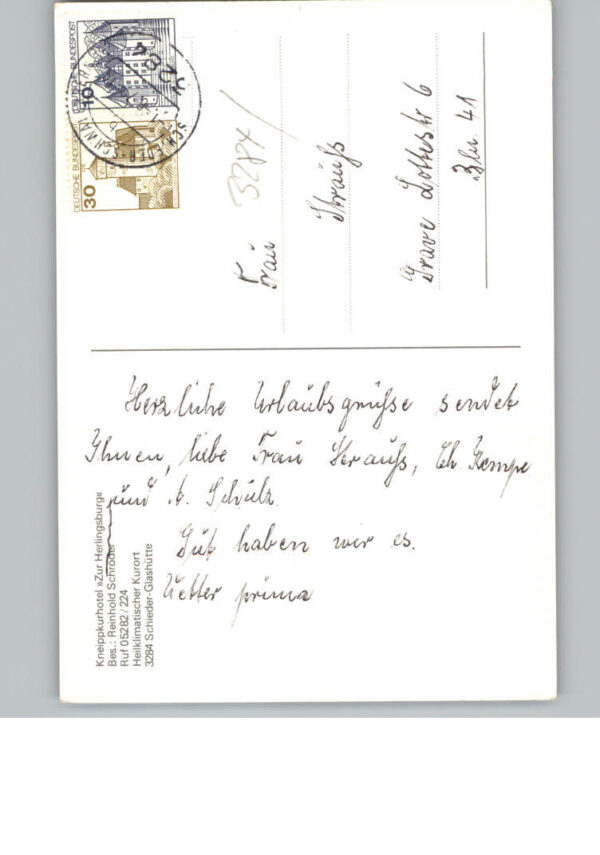 DEUTSCHE BUNDESPOST
10
DEUTSCHE BUNDES
30
3284/
Frau
Strauß
Grave Lothestr 6
3284 Schieder-Glashütte
Heilklimatischer Kurort
Ruf 05282/224
Bes.: Reinhold Schröder
Kneippkurhotel »Zur Herlingsburg«
Herzliche Urlaubsgrüße sendet
Ihnen, liebe Frau Strauß,
und A. Schulz
Gut haben wir es.
Wetter prima